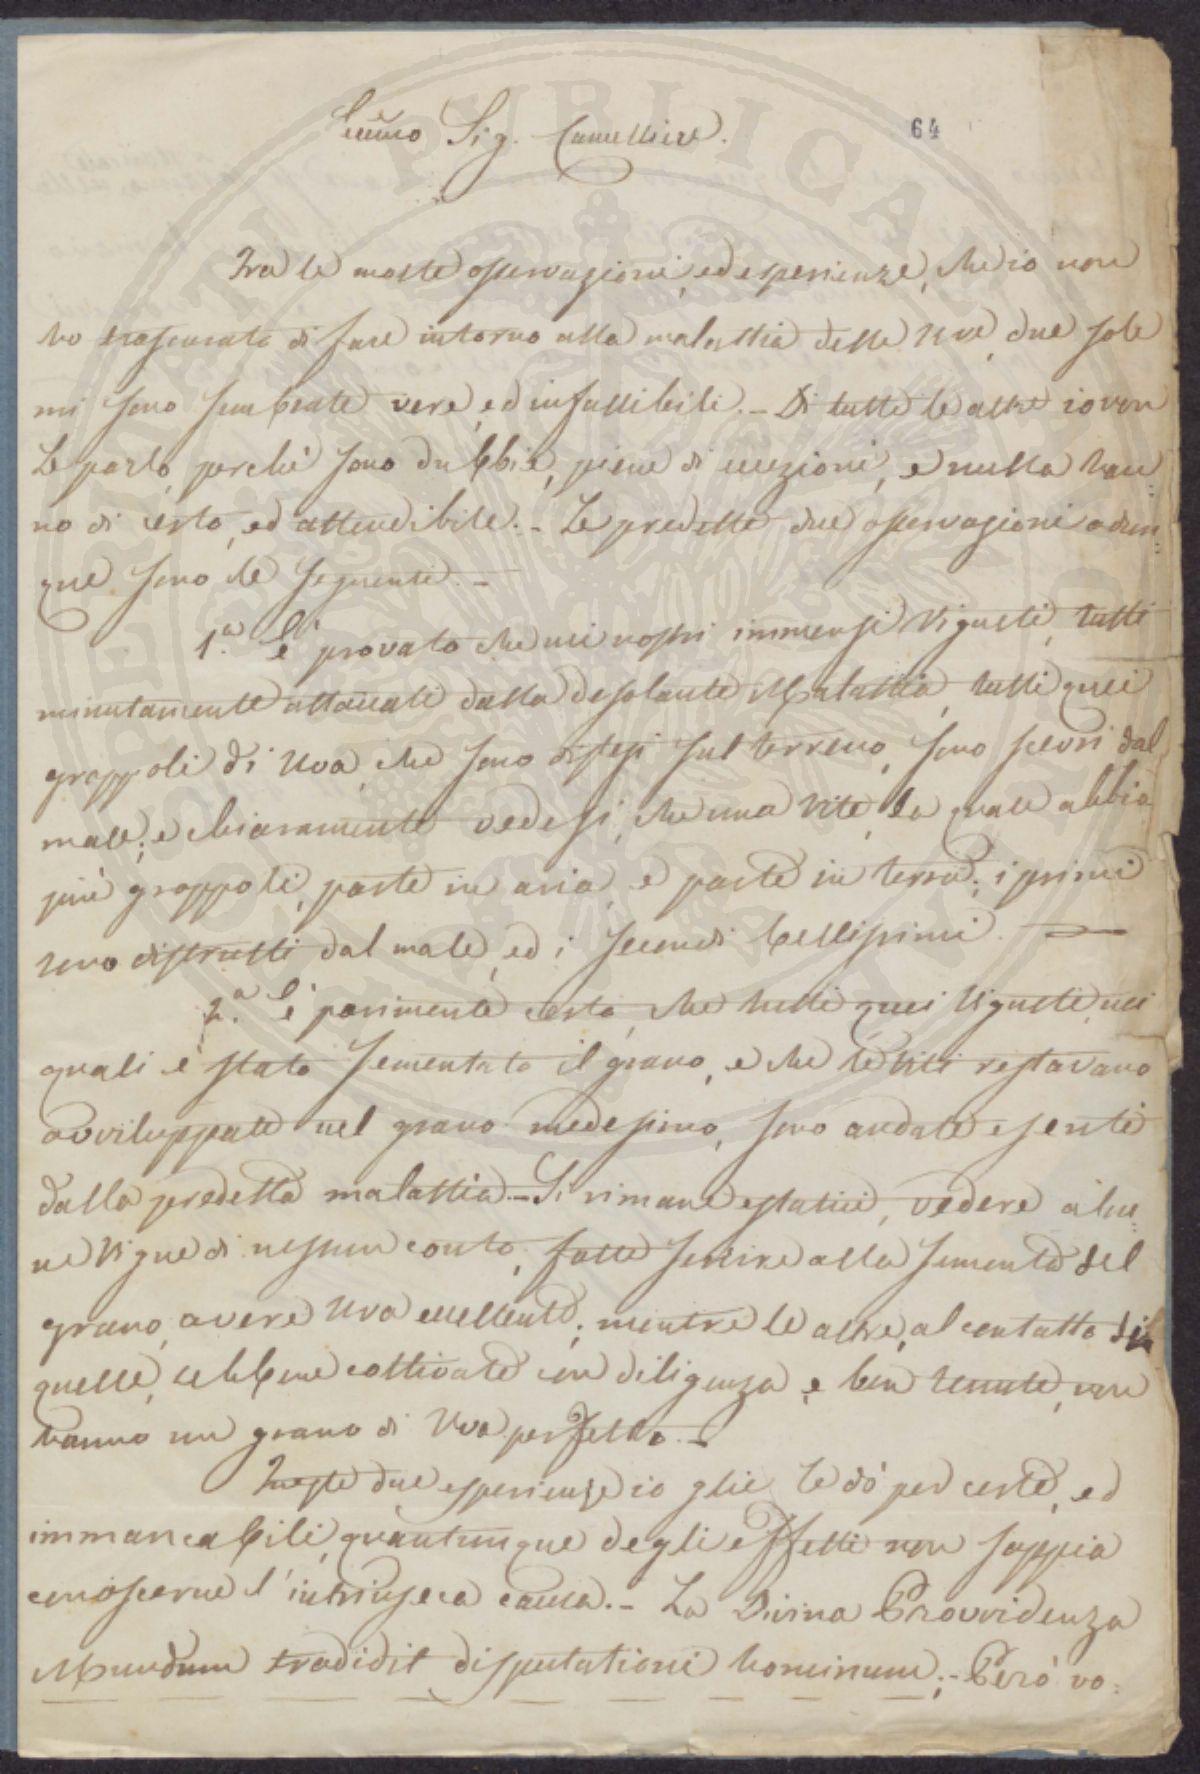 Sig. Cancelliere.
64
Tra le molte osservazioni, ed esperienze, che io non
ho trascurato di fare intorno alla malattia delle Uve, due sole
mi sono sembrate vere, ed infallibili. - Di tutte le altre io non
Le parlo, perchè sono dubbie, piene di eccezioni, e nulla han=
no di certo, ed attendibile. - Le predette due osservazioni adun=
que sono le seguenti. -
1.ª È provato che nei nostri immensi Vigneti, tutti
minutamente attaccati dalla desolante Malattia, tutti quei
grappoli di Uva, che sono distesi sul terreno, sono scevri dal
male; e chiaramente vedesi, che una Vite, la quale abbia
più grappoli, parte in aria, e parte in terra; i primi
sono distrutti dal male, ed i secondi bellissimi.
2.ª È parimente certo, che tutti quei Vigneti, nei
quali è stato sementato il grano, e che le Viti restavano
avviluppate nel grano medesimo, sono andate esenti
dalla predetta malattia. - Si rimane estatici, vedere alcu=
ne Vigne di nessun conto, fatte servire alla sementa del
grano, avere Uva eccellente; mentre le altre, al contatto di
quelle, sebbene coltivate con diligenza, e ben tenute, non
hanno un grano di Uva perfetto. -
Queste due esperienze io glie le dò per certe, ed
immancabili, quantunque degli effetti non sappia
conoscerne l'intrinseca causa. - La Divina Provvidenza
Mundum tradidit disputationi hominum; - Però vo=